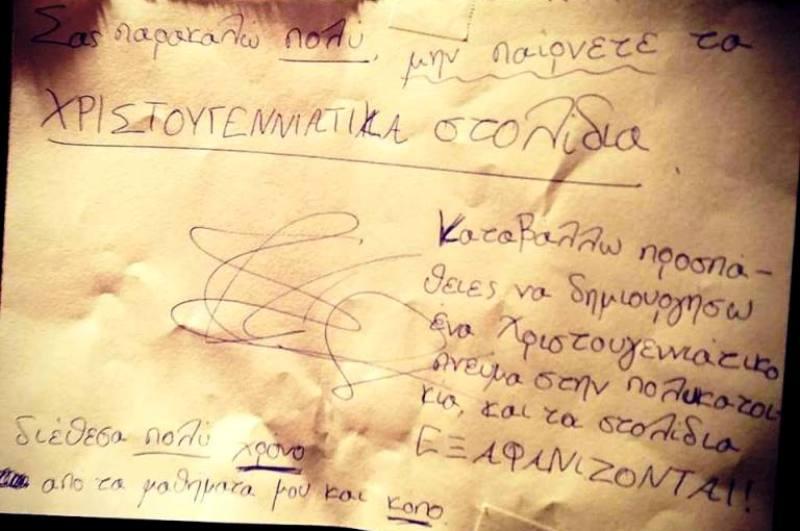 Σας παρακαλώ πολύ, μην παίρνετε τα
ΧΡΙΣΤΟΥΓΕΝΝΙΑΤΙΚΑ στολίδια.
Καταβάλλω προσπά-
θειες να δημιουργήσω
ένα Χριστουγεννιάτικο
πνεύμα στην πολυκατοι-
κία, και τα στολίδια
ΕΞΑΦΑΝΙΖΟΝΤΑΙ!
διέθεσα πολύ χρόνο
από τα μαθήματα μου και κόπο.